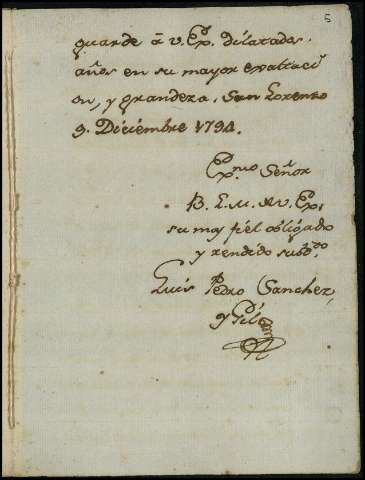 5
guarde â v. Exâ. dilatados
años en su mayor exaltaci
on, y grandeza. San Lorenzo
9. Diciembre 1794.
Exmo Señor
B. L. M. de V. Exâ.
su mas fiel obligado
y rendido subdto.
Luis Pedro Sanchez,
y Gil